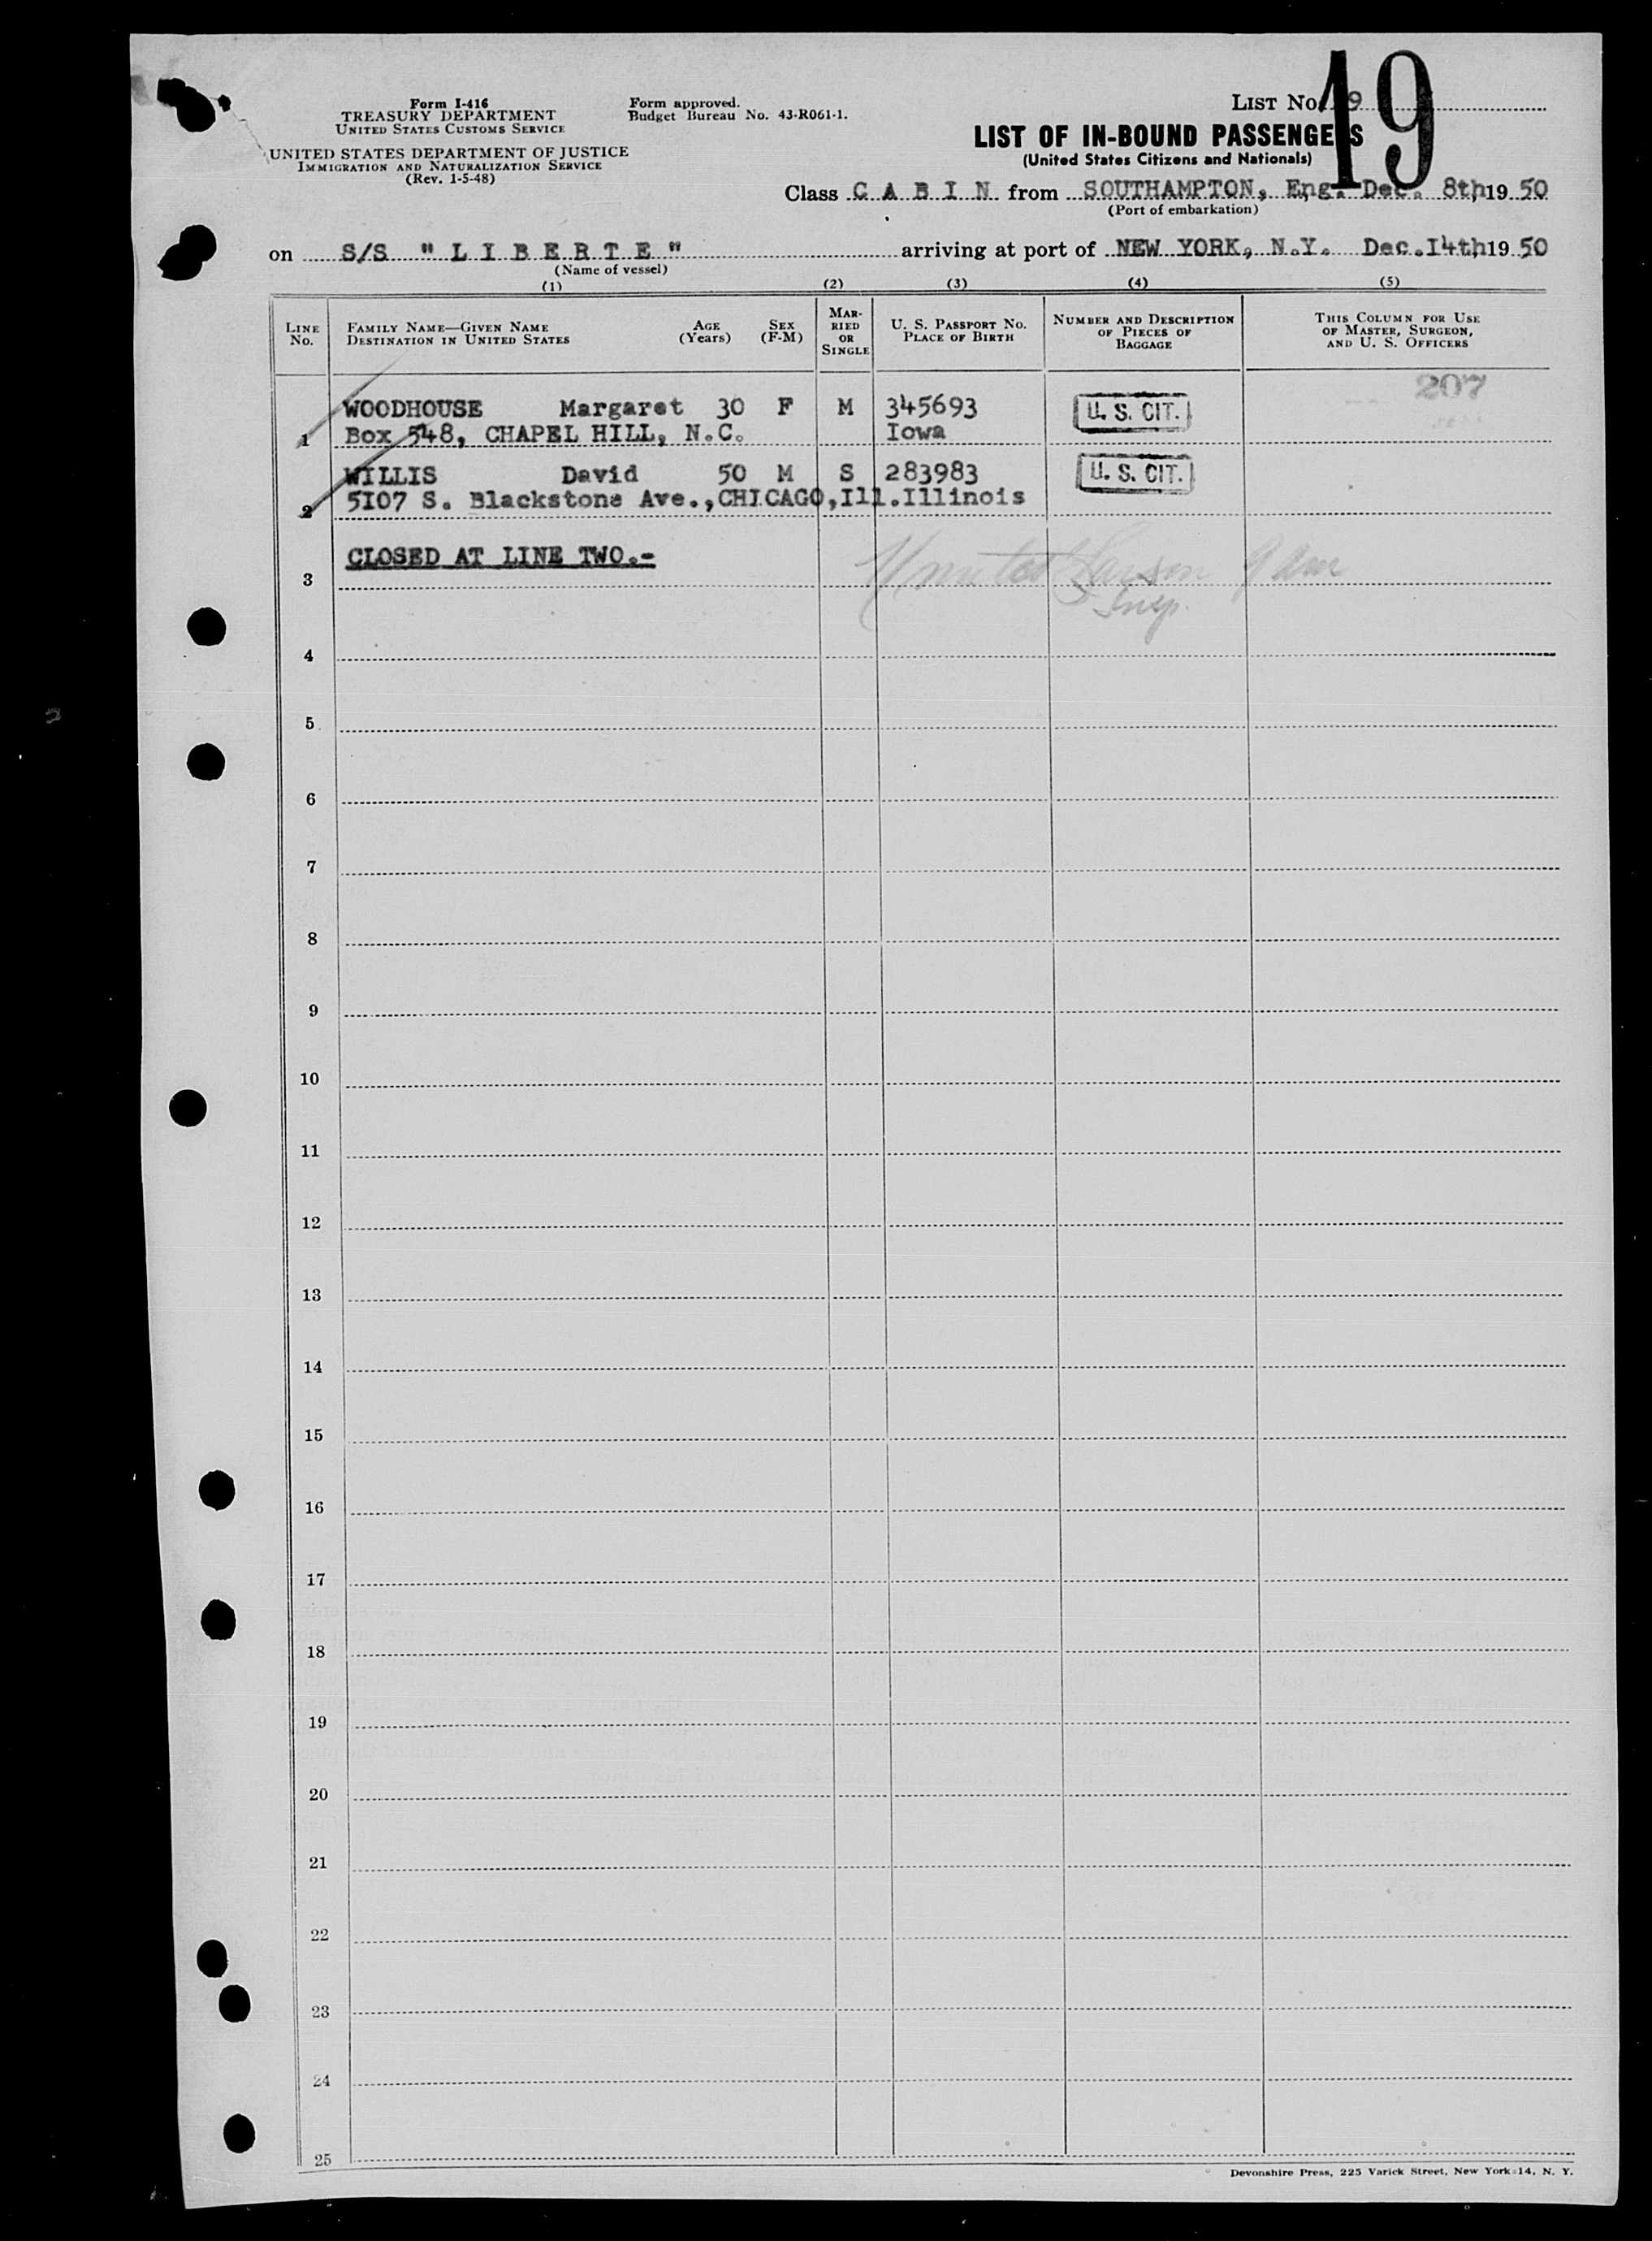 Form I-416
TREASURY DEPARTMENT
UNITED STATES CUSTOMS SERVICE
UNITED STATES DEPARTMENT OF JUSTICE
IMMIGRATION AND NATURALIZATION SERVICE
(Rev. 1-5-48)
Form approved.
Budget Bureau No. 43-R061-1.
LIST No. 19
19
LIST OF IN-BOUND PASSENGERS
(United States Citizens and Nationals)
Class C A B I N from SOUTHAMPTON, Eng. Dec. 8th, 19 50
(Port of embarkation)
on S/S "L I B E R T E" arriving at port of NEW YORK, N.Y. Dec.I4th, 19 50
(Name of vessel)
(1) (2) (3) (4) (5)
LINE No.
FAMILY NAME—GIVEN NAME
DESTINATION IN UNITED STATES
AGE (Years)
SEX (F-M)
MARRIED OR SINGLE
U. S. PASSPORT NO.
PLACE OF BIRTH
NUMBER AND DESCRIPTION OF PIECES OF BAGGAGE
THIS COLUMN FOR USE OF MASTER, SURGEON, AND U. S. OFFICERS
207
WOODHOUSE Margaret 30 F M 345693 U. S. CIT.
1 Box 548, CHAPEL HILL, N.C. Iowa
WILLIS David 50 M S 283983 U. S. CIT.
2 5I07 S. Blackstone Ave.,CHICAGO,Ill.Illinois
CLOSED AT LINE TWO.-
3
Insp.
4
5
6
7
8
9
10
11
12
13
14
15
16
17
18
19
20
21
22
23
24
25
Devonshire Press, 225 Varick Street, New York 14, N. Y.